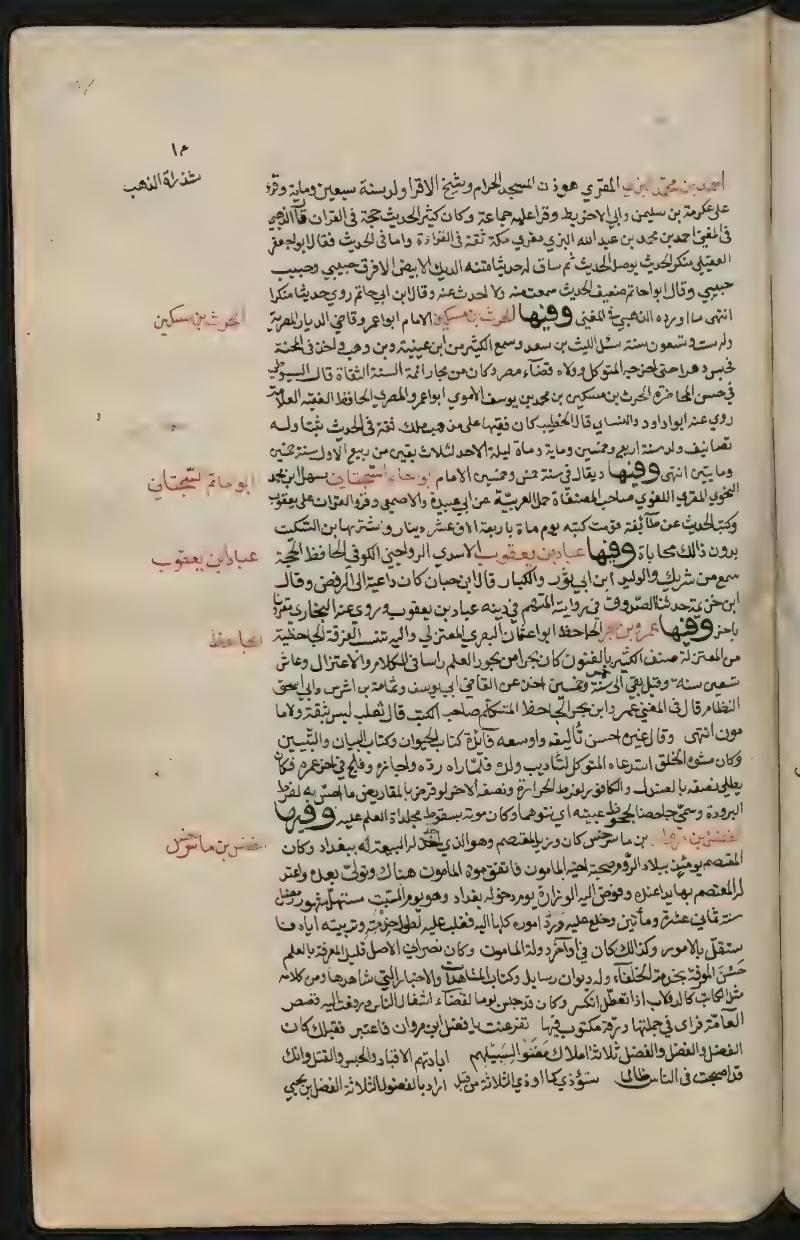 ١٢
شذراة الذهب
احمد بن محمد البزي المقري موذن المسجد الحرام وشيخ الاقرا ولد سنة سبعين وماية وقرا
على عكرمة بن سليمن وابي الاخريط وقرا عليه جماعة وكان كثير الحديث حجة في القران قال الذهبي
في المغني احمد بن محمد بن عبد الله البزي مقري مكة ثقة في القراءة واما في الحديث فقال ابو جعفر
العقيلي منكر الحديث يوصل الحديث ثم ساق له حديثا متنه الديك الابيض الافرق حبيبي وحبيب
حبيبي وقال ابو حاتم ضعيف الحديث سمعت منه ولا احدث عنه وقال ابن ابي حاتم روي حديثا منكرا
انتهى ما اورده الذهبي في المغني وفيها الحرث بن مسكين الامام ابو عمرو قاضي الديار المصرية
الحرث بن مسكين
وله ست وتسعون سنة سئل الليث بن سعد وسمع الكثير من ابن عيينة وبن وهب واخذ في المحنة
فحبس دهرا حتى اخرجه المتوكل وولاه قضاء مصر وكان من كبار ائمة السنة الثقاة قال السيوطي
في حسن المحاضرة الحرث بن مسكين بن محمد بن يوسف الاموي ابو عمرو المصري الحافظ الفقيه العلامة
روي عنه ابو داود والنساي قال الخطيب كان فقيها على مذهب مالك ثقة في الحديث ثبتا وله
تصانيف ولد سنة اربع وخمسين وماية ومات ليلة الاحد لثلاث بقين من ربيع الاول سنة خمسين
ومايتين انتهى وفيها ويقال في سنة خمس وخمسين الامام ابو حاتم السجستاني سهل بن محمد
ابو حاتم السجستاني
النحوي المقري اللغوي صاحب المصنفاة حمل العربية عن ابي عبيدة والاصمعي وقرا القران على يعقوب
وكتب الحديث عن طائفة قومت كتبه يوم مات باربعة الاف عشر دينار واشترها بن السكيت
بدون ذالك محاباة وفيها عباد بن يعقوب الاسدي الرواجني الكوفي الحافظ الحجة
عباد بن يعقوب
سمع من شريك والوليد ابن ابي ثور والكبار قال ابن حبان كان داعية الى الرفض وقال
ابن خزيمة حدثنا الصدوق في روايته المتهم في دينه عباد بن يعقوب وروي عنه البخاري مقرونا
باخر وفيها عمرو بن بحر الجاحظ ابو اعثمان البصري المعتزلي واليه تنسب الفرقة الجاحظية
الجاحظ
من المعتزلة صنف الكثير بالفنون كان بحرا من بحور العلم راسا في الكلام والاعتزال وعاش
تسعين سنة وقيل بقي الى سنة خمس وخمسين اخذ عن القاضي ابي يوسف وثمامة بن اشرس وابي اسحق
النظام قال في المغني عمرو ابن بحر الجاحظ المتكلم صاحب الكتب قال ثعلب ليس بثقة ولا ما
مون انتهى وقال غيره احسن تاليفه واوسعه فائزة كتاب الحيوان وكتاب البيان والتبيين
وكان مشوه الخلق استدعاه المتوكل لتاديب ولده فلما راه رده واجازه وفلج في اخر عمره فكان
يطلي نصفه بالصندل والكافور لفرط الحرارة ونصفه الاخر لو قرض بالمقاريض ما احس به لفرط
البرودة وسمي جاحظا لجحوظ عينيه اي نتوهما وكان موته بسقوط مجلداة العلم عليه وفيها
الفضل بن مروان بن ماسرخس كان وزير المعتصم وهو الذي اخذ له البيعة له ببغداد وكان
فضل بن ماسرخس
المعتصم يومئذ ببلاد الروم صحبة اخيه المامون فاتفق موة المامون هناك وتولى بعده واعتد
له المعتصم بها يدا عنده وفوض اليه الوزارة يوم دخوله بغداد وهو يوم السبت مستهل شهر رمضان
سنة ثماني عشرة ومأتين وخلع عليه ورد اموره كلها اليه فغلب عليه لطول خدمته وتربيته اياه فا
ستقل بالامور وكذالك كان في اواخر دولة المامون وكان نصراني الاصل قليل المعرفة بالعلم
حسن المعرفة بخدمة الخلفاء وله ديوان رسايل وكتاب المشاهدات والاخبار التي شاهدها ومن كلامه
مثل الكاتب كالدولاب اذا تعطل انكسر وكان قد جلس يوما لقضاء اشغال الناس ورفعت اليه قصص
العامة فراى في جملتها ورقة مكتوب فيها تفرعنت يا فضل ابن مروان فاعتبر فقبلك كان
الفضل والفضل والفضل ثلاثة املاك مضوا لسبيلهم ابادتهم الاقياد والحبس والقتل وانك
قد اصبحت في الناس ظالما ستؤذي كما اوذي الثلاثة من قبل اراد بالفضول الثلاثة الفضل بن يحيي